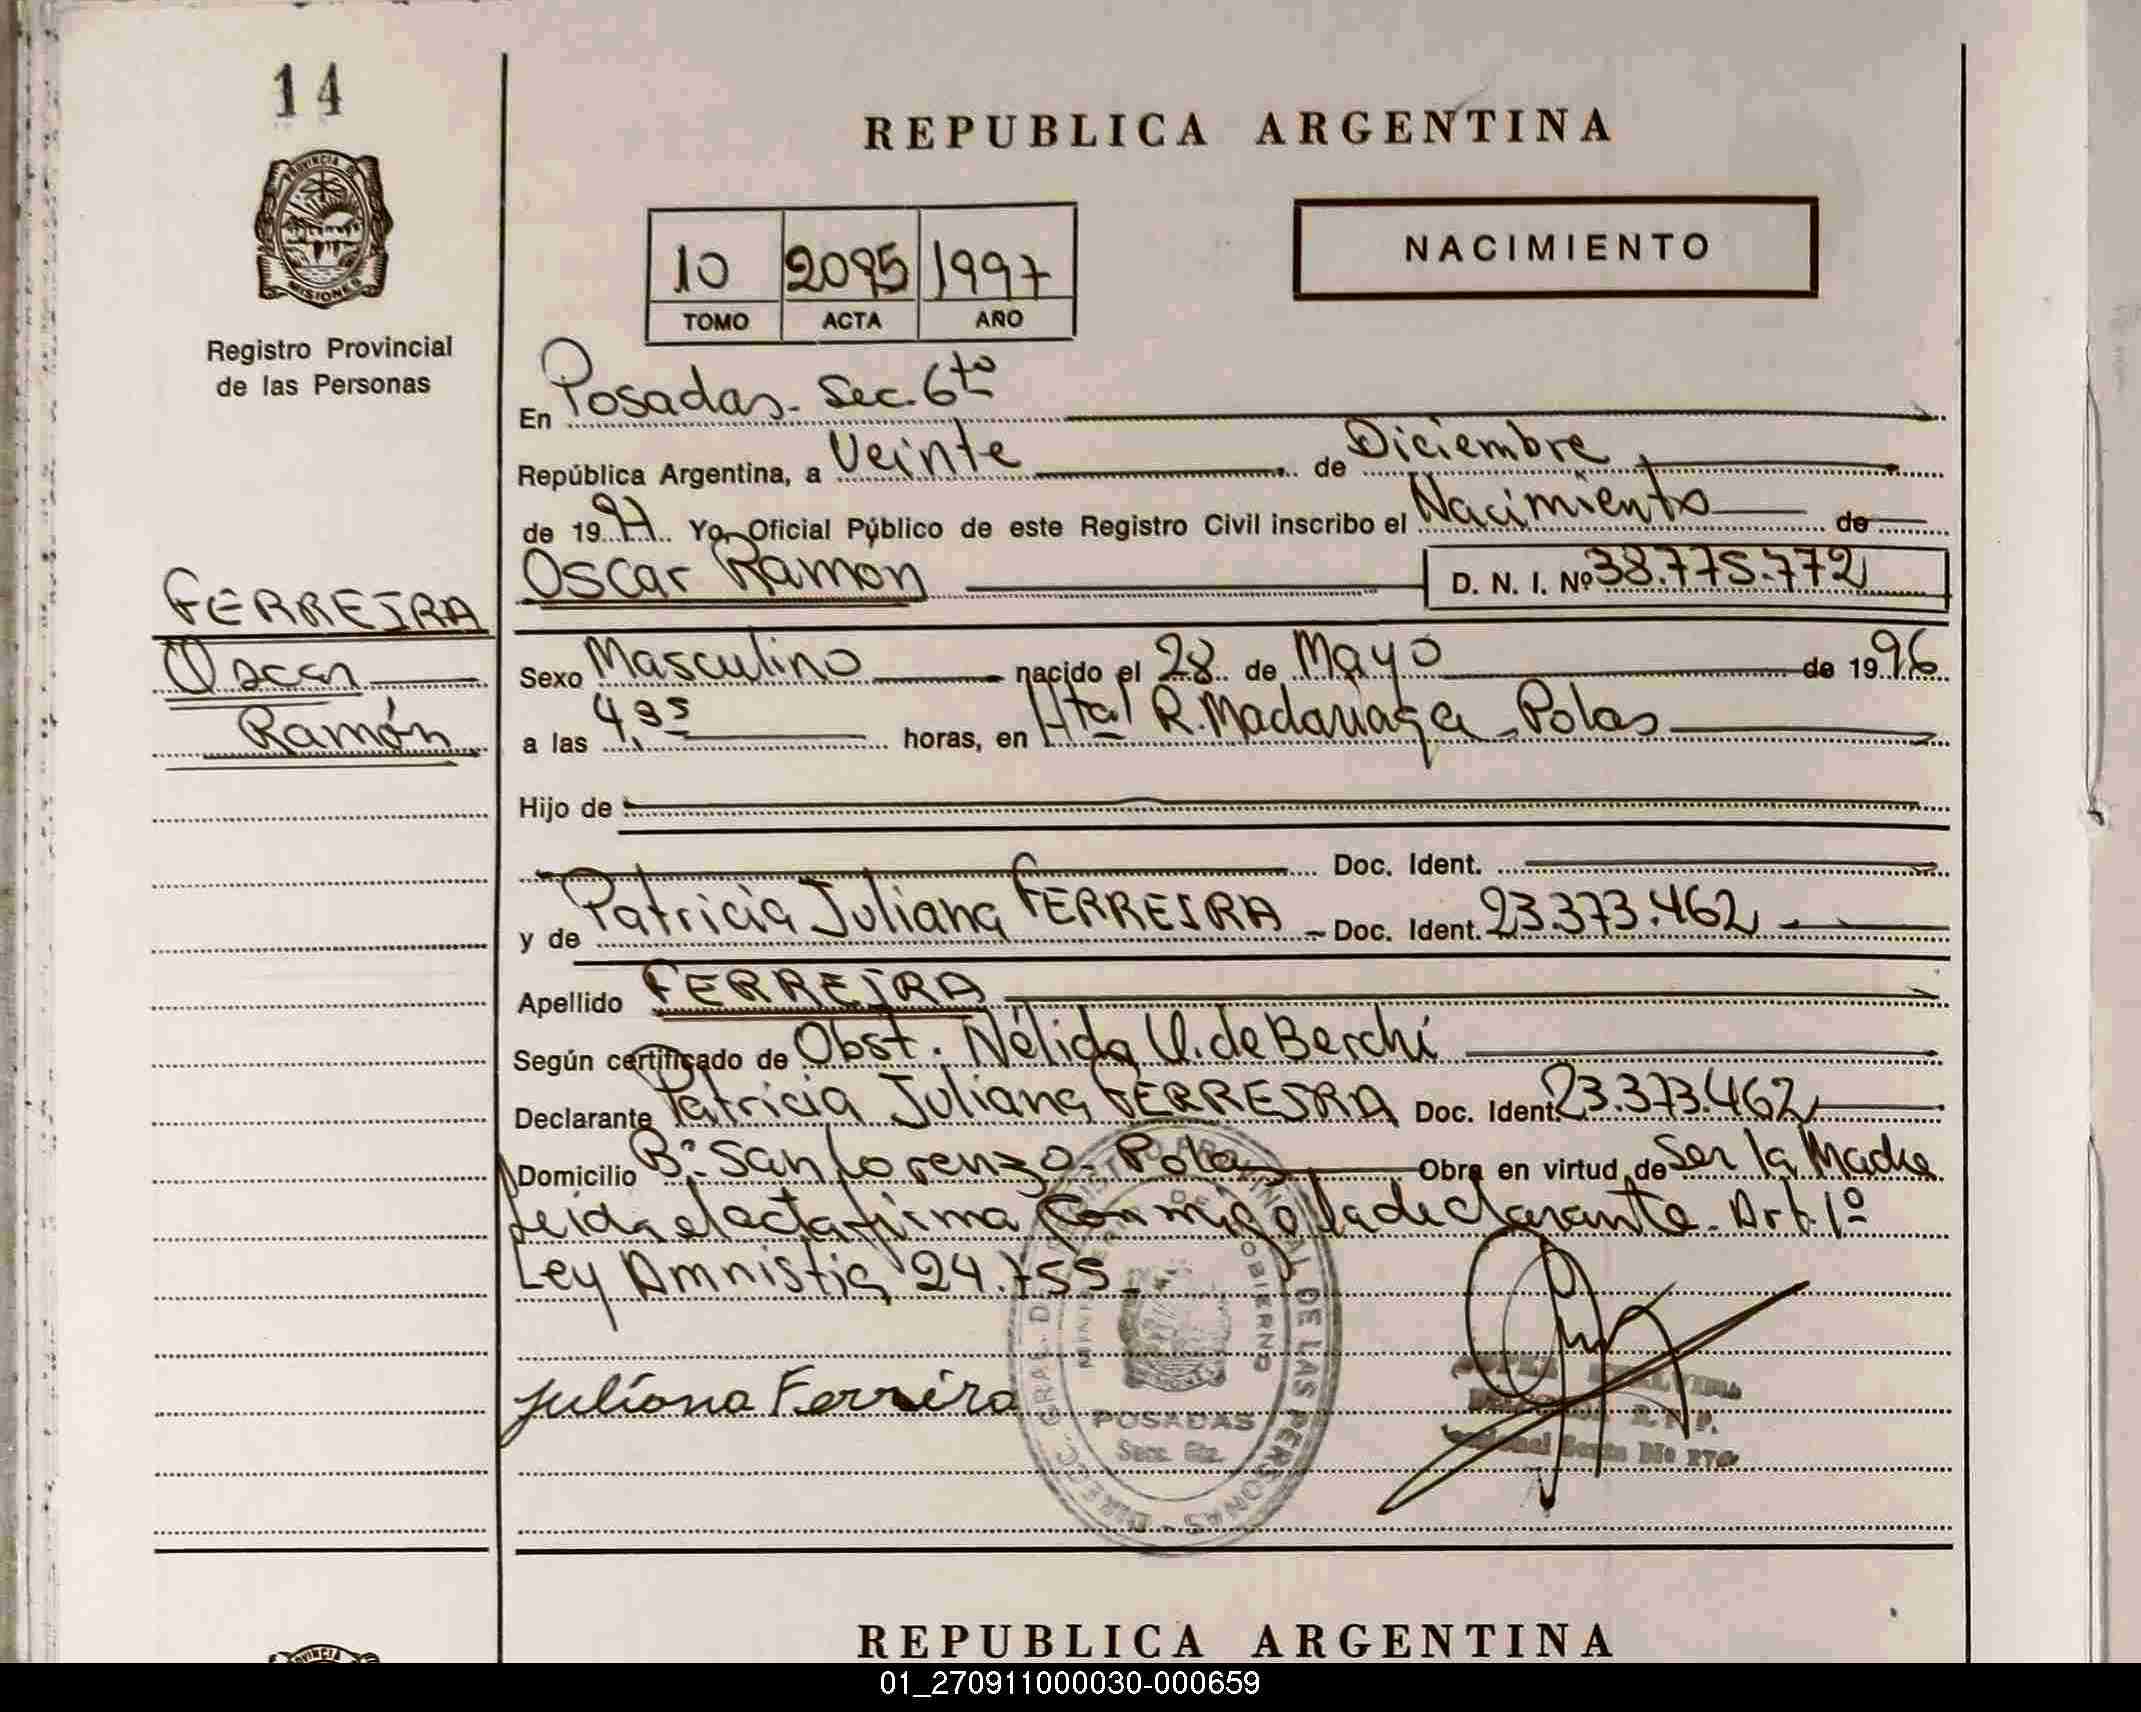 14
REPUBLICA ARGENTINA
PROVINCIA DE
MISIONES
Registro Provincial
de las Personas
10 2095 1997
TOMO ACTA AÑO
NACIMIENTO
En Posadas. Sec. 6ta
República Argentina, a Veinte de Diciembre
de 1997 Yo, Oficial Público de este Registro Civil inscribo el Nacimiento de
Oscar Ramon D. N. I. Nº 38.775.772
FERREIRA
Oscar
Ramón
Sexo Masculino nacido el 28 de Mayo de 1996
a las 4,35 horas, en Htal R. Madariaga - Pdas
Hijo de
Doc. Ident.
y de Patricia Juliana FERREIRA - Doc. Ident. 23.373.462
Apellido FERREIRA
Según certificado de Obst. Nélida V. de Berchi
Declarante Patricia Juliana FERREIRA Doc. Ident. 23.373.462
Domicilio Bº. San Lorenzo - Pdas Obra en virtud de Ser la Madre
Leida el acta firma conmigo la declarante. Art. 1º
Ley Amnistia 24.755.
Juliana Ferreira
DIREC. GRAL. DEL REGISTRO PROVINCIAL DE LAS PERSONAS
MINISTERIO DE GOBIERNO
POSADAS
Secc. 6ta.
REPUBLICA ARGENTINA
01_270911000030-000659